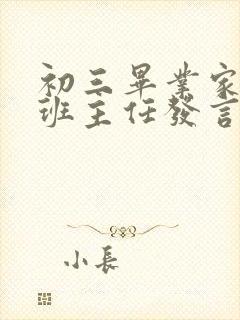 初三畢業家
班主任發言
小長